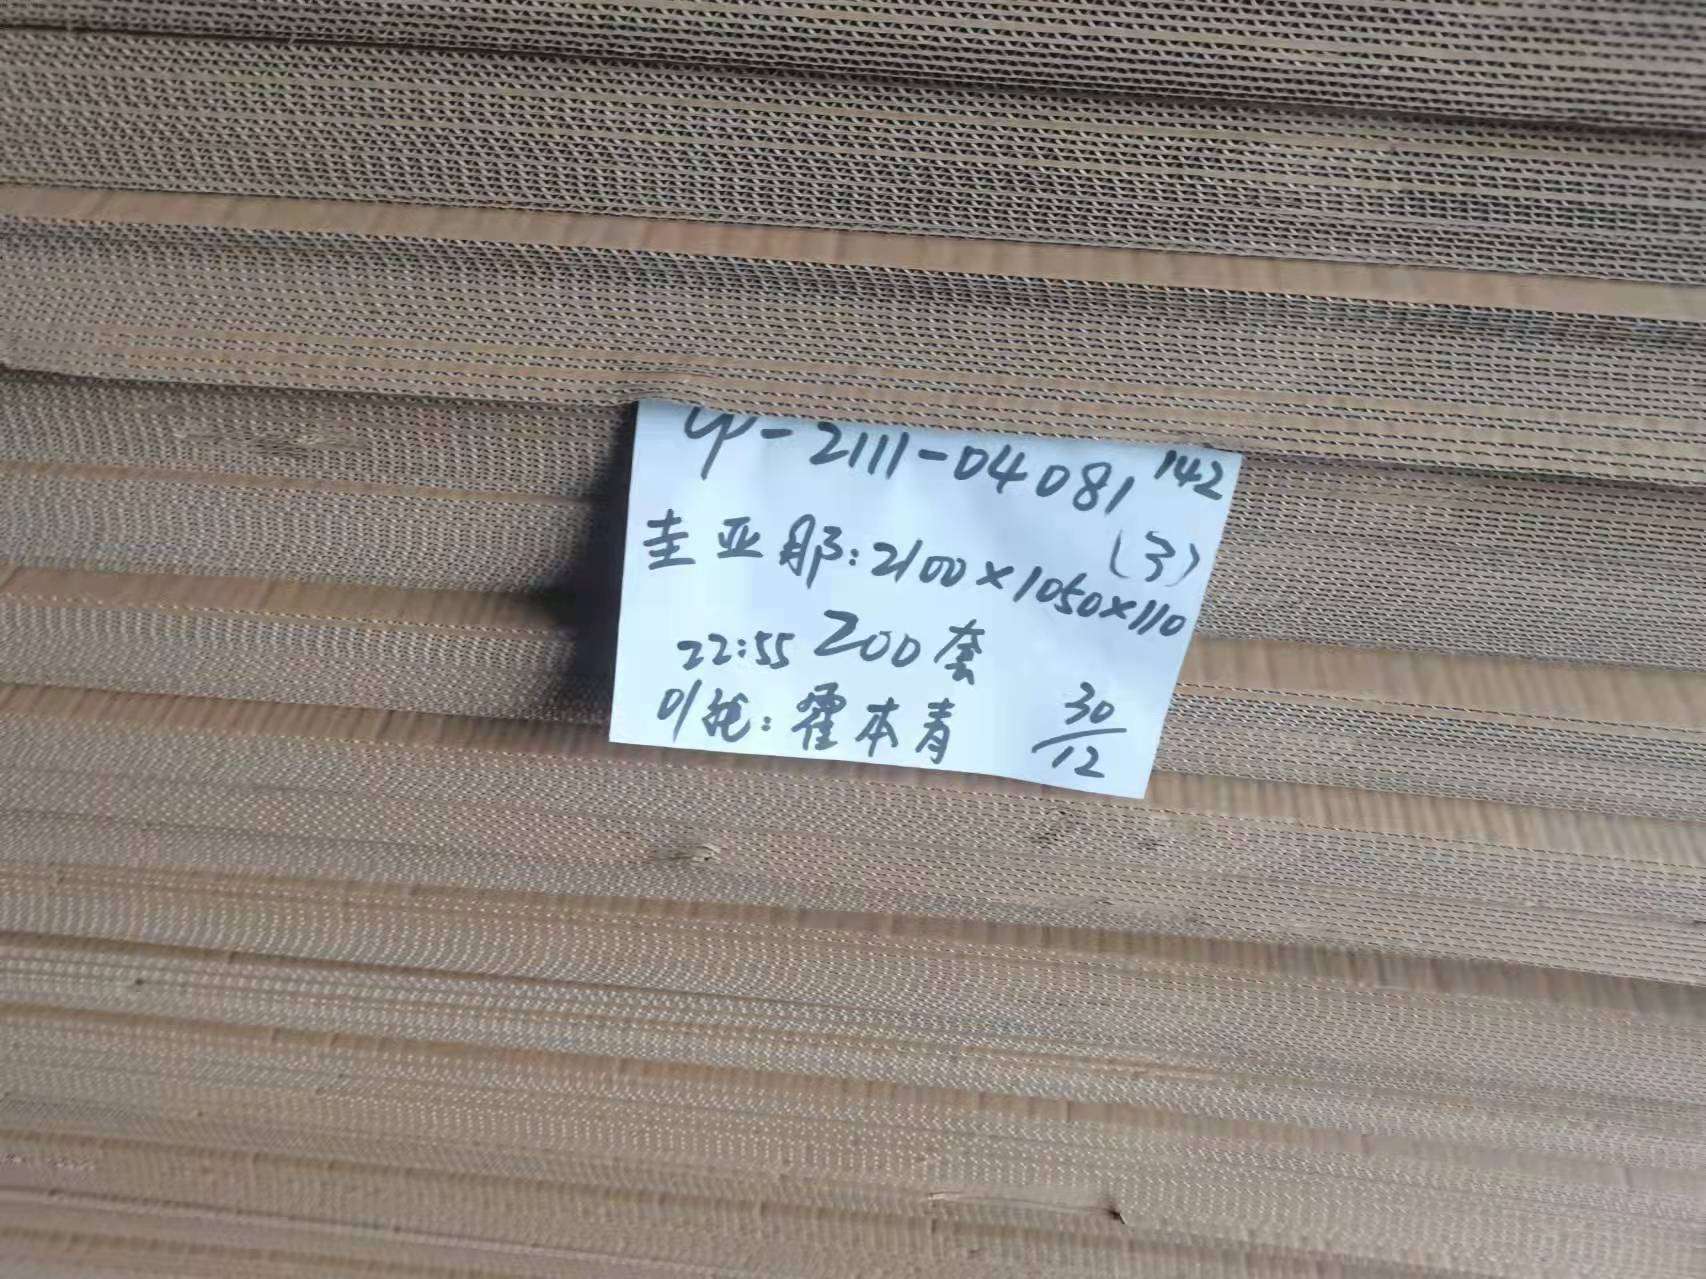 CP-2111-04081 142
(3)
圭亚那:2100×1050×110
22:55 200套
叭托:霍本青 30/12